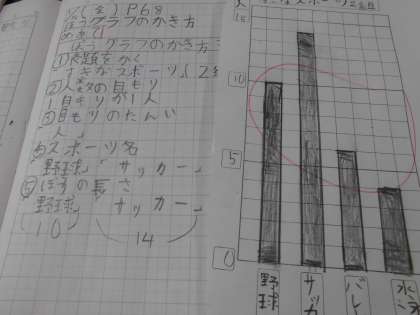 P68
ぼうグラフのかき方
めあて
ぼうグラフのかき方
①表題をかく
すきなスポーツ
②人数の目もり
1目もりが1人
③目もりのたんい
人
④スポーツ名
野球、サッカー
⑤ぼうの長さ
野球 サッカー
(10) (14)
人
なスポーツ
15
10
5
0
野球
サッカ
バレ
水泳